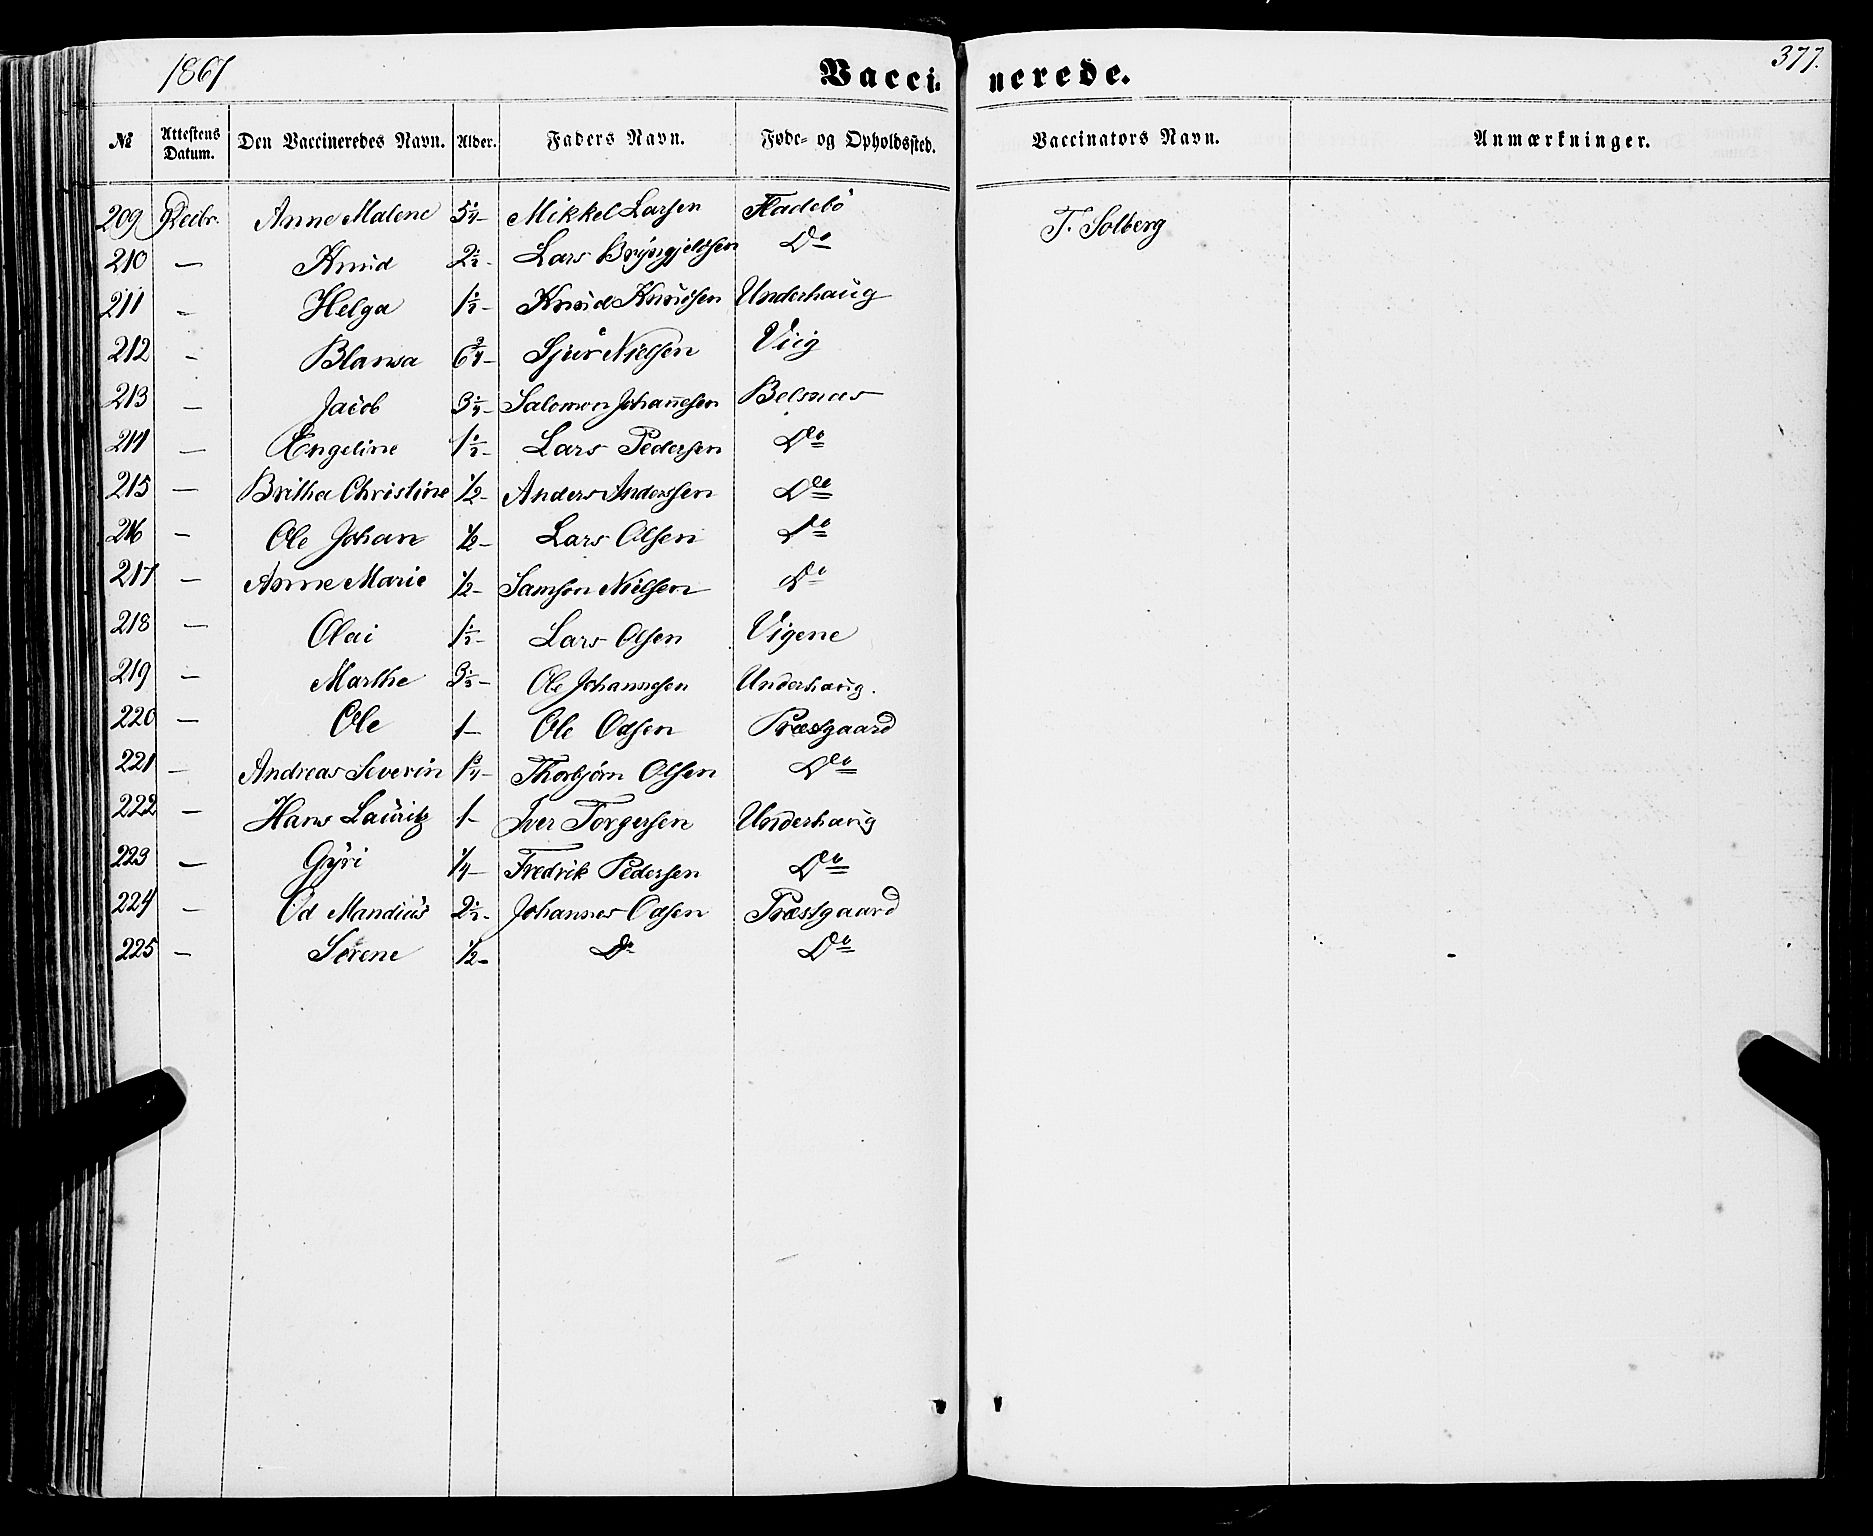 1867
Vaccinerede.
377.
No Attestens Datum. Den Vaccineredes Navn. Alder. Faders Navn. Føde- og Opholdssted. Vaccinators Navn. Anmærkninger.
209 Anne Malene 5 1/4 - Mikkel Larsen Fladebö T. Solberg
210 — Knud 2 1/2 - Lars Brÿngjelfsen Do
211 - Helga 1 1/2 - Knud Knudsen Underhaug
212 - 6 3/4 - Sjur Nielsen Viig
213 - Jacob 3 1/4 - Salomon Johannesen Belsnæs
214 — Engeline 1 1/2 - Lars Pedersen Do
215 — Britha Christine 1/2 - Anders Anderssen Do
216 - Ole Johan 1/2 - Lars Olsen Do
217 - Anne Marie 1/2 - Samson Nielsen Do
218 — Olai 1 1/2 - Lars Olsen Vigene
219 - Marthe 3 1/2 - Ole Johannesen Underhaug.
220 — Ole 1 — Ole Odsen Præstgaard
221 - Andreas Severin 1 3/4 - Thorbjörn Olsen Do
222 - Hans Lauritz 1 - Iver Torgersen Underhaug
223 — Gÿri 1/4 - Fredrik Pedersen Do
224 - Od Mandius 2 1/2 - Johannes Odsen Præstgaard
225 - Sørene 1/2 - Do Do